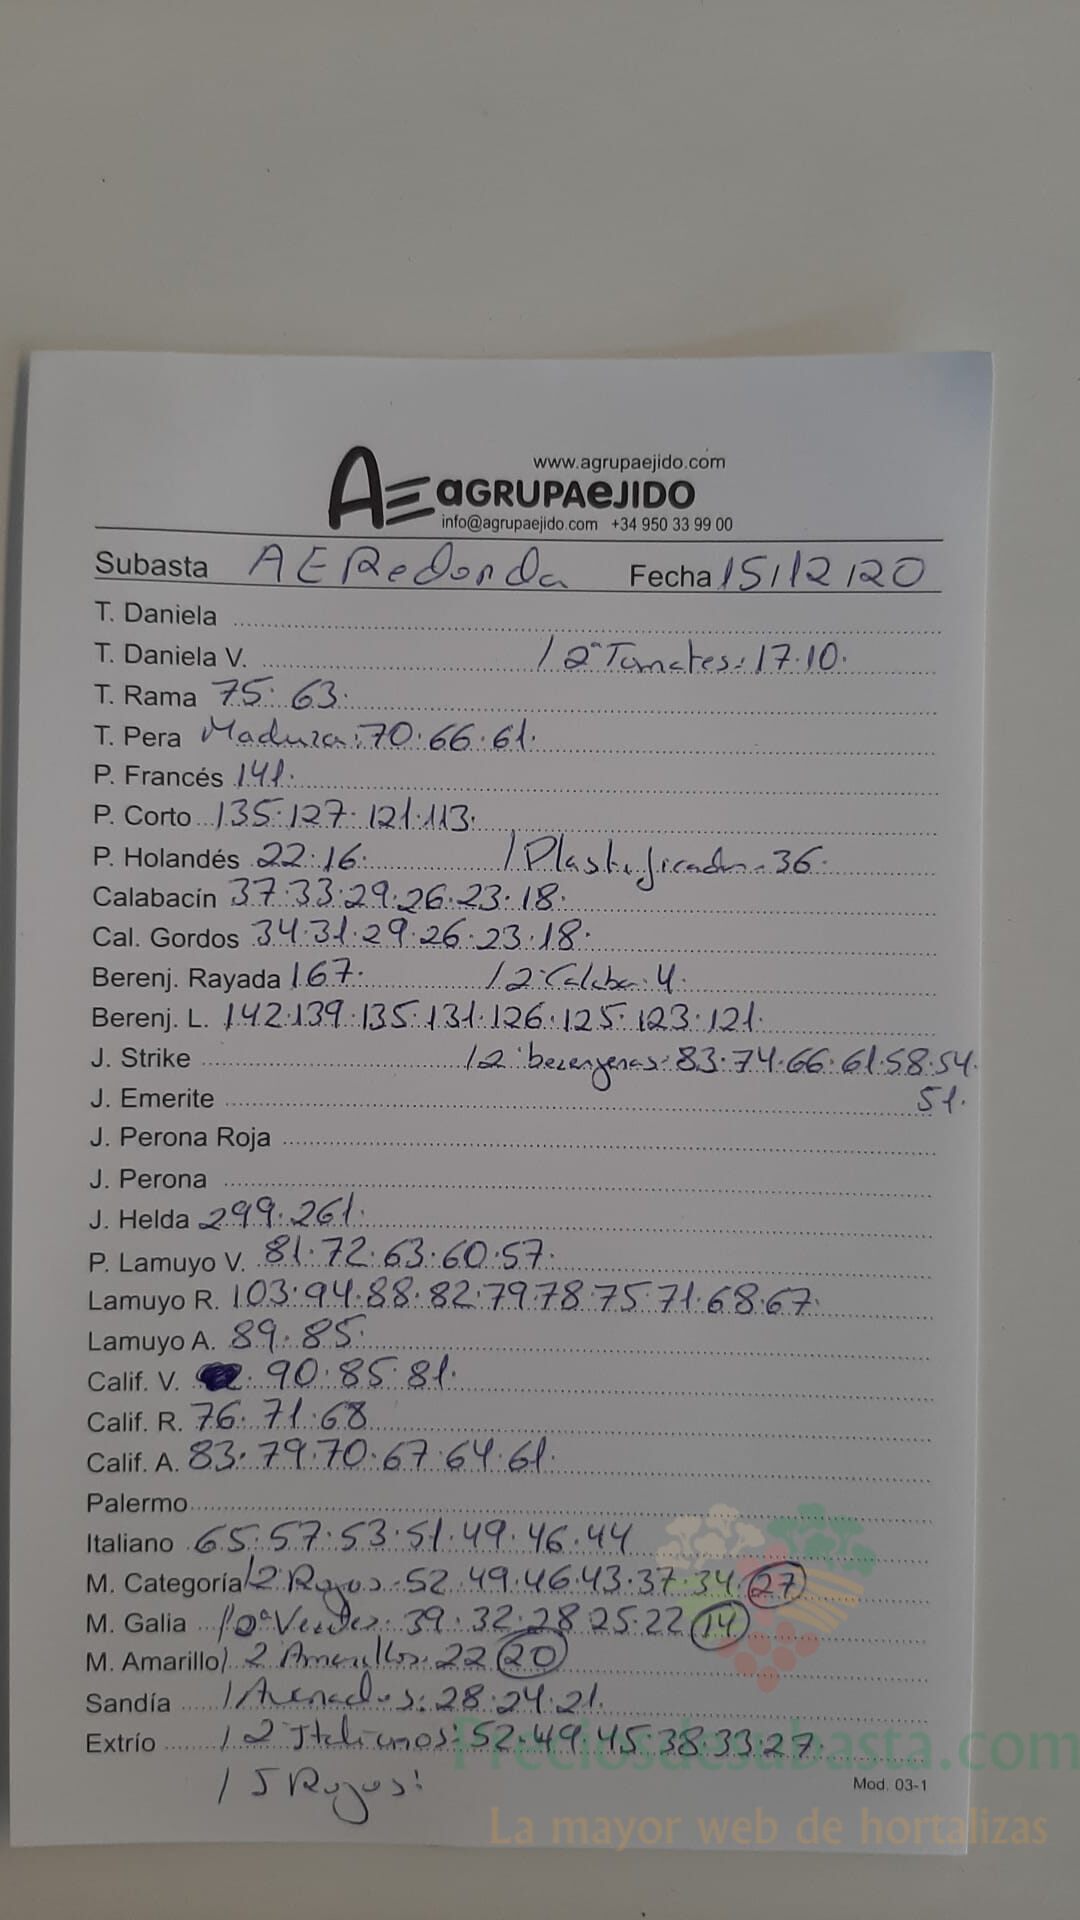 www.agrupaejido.com
AE aGRUPAeJIDO
info@agrupaejido.com +34 950 33 99 00
Subasta AERedonda Fecha 15/12/20
T. Daniela
T. Daniela V. / 2ª Tomates: 17.10.
T. Rama 75. 63.
T. Pera Madura: 70.66.61.
P. Francés 141.
P. Corto 135.127.121.113.
P. Holandés 22.16. / Plastificados 36.
Calabacín 37.33.29.26.23.18.
Cal. Gordos 34.31.29.26.23.18.
Berenj. Rayada 167. / 2ª Calaba: 4.
Berenj. L. 142.139.135.131.126.125.123.121.
J. Strike / 2ª berenjenas: 83.74.66.61.58.54.
J. Emerite 51.
J. Perona Roja
J. Perona
J. Helda 299.261.
P. Lamuyo V. 81.72.63.60.57.
Lamuyo R. 103.94.88.82.79.78.75.71.68.67.
Lamuyo A. 89.85.
Calif. V. 90.85.81.
Calif. R. 76.71.68
Calif. A. 83.79.70.67.64.61.
Palermo
Italiano 65.57.53.51.49.46.44
M. Categoría / 2 Rojos: 52.49.46.43.37.34.27
M. Galia / 2ª Verdes: 39.32.28.25.22 14
M. Amarillo / 2 Amarillos: 22 20
Sandía / Asenados: 28.24.21.
Extrío / 2 Italianos: 52.49.45.38.33.27.
/ 5 Rojos:
Mod. 03-1
Preciosdesubasta.com
La mayor web de hortalizas